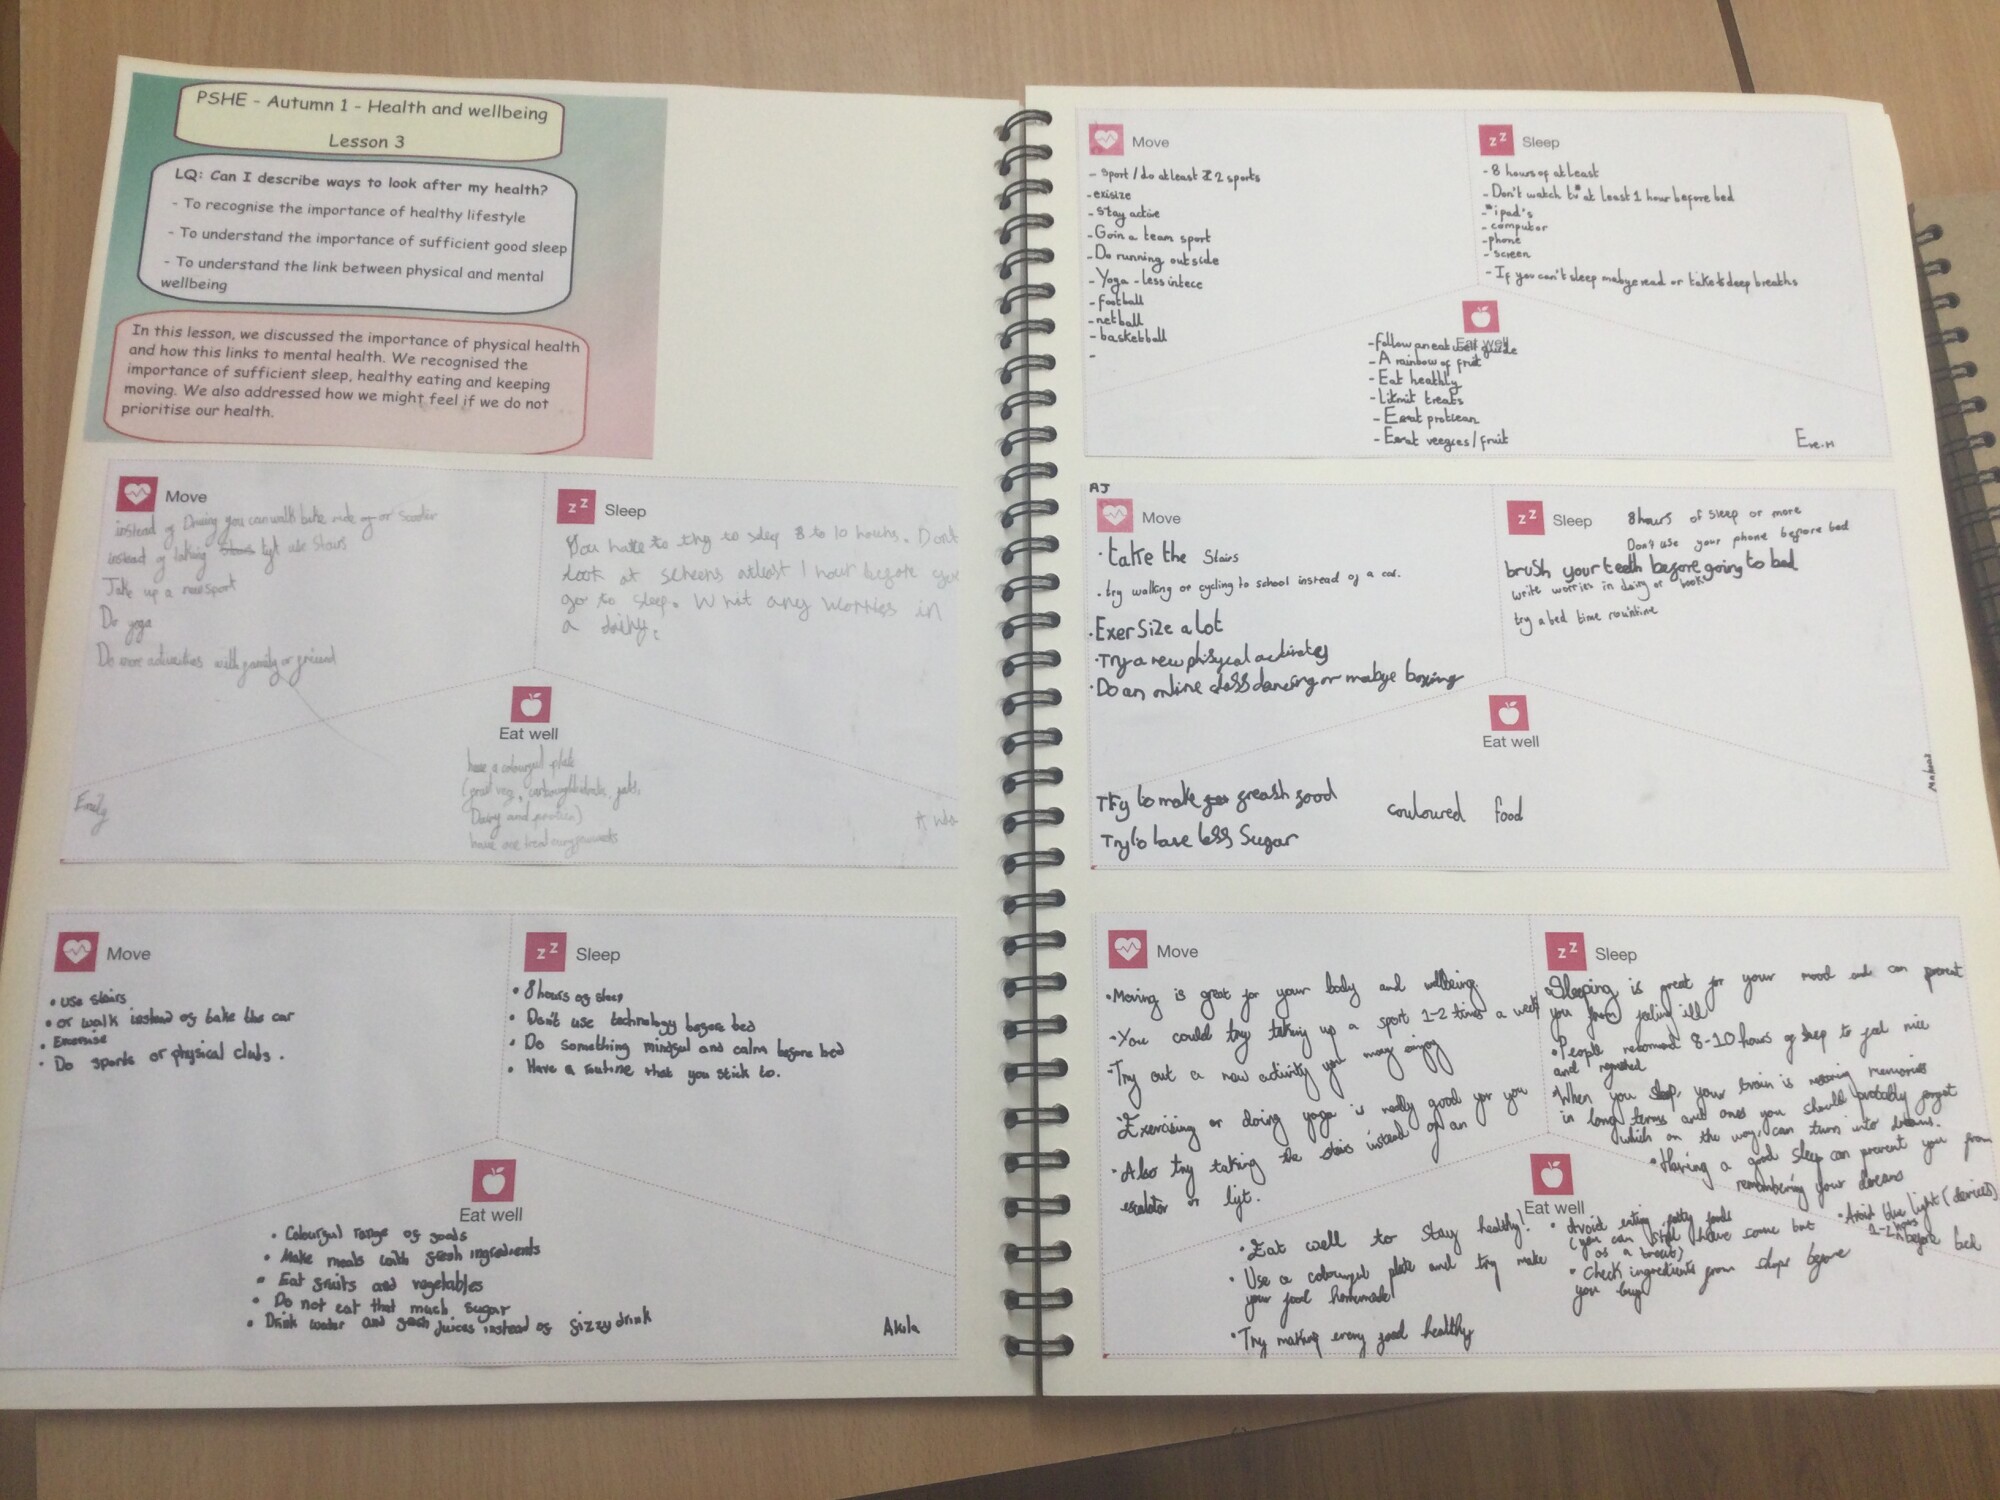 PSHE - Autumn 1 - Health and wellbeing
Lesson 3
LQ: Can I describe ways to look after my health?
- To recognise the importance of healthy lifestyle
- To understand the importance of sufficient good sleep
- To understand the link between physical and mental
wellbeing
In this lesson, we discussed the importance of physical health
and how this links to mental health. We recognised the
importance of sufficient sleep, healthy eating and keeping
moving. We also addressed how we might feel if we do not
prioritise our health.
Move
instead of you can walk bike ride or scooter
instead of taking lift use stairs
Take up a new sport
Do yoga
Do more activities with family or friend
Sleep
You have to try to sleep 8 to 10 hours. Dont
look at screens atleast 1 hour before you
go to sleep. any worries in
a
Eat well
have a colourful plate
Dairy and
Emily
Move
• use stairs
• or walk instead of take the car
• Exercise
• Do sports or physical clubs.
Sleep
• 8 hours of sleep
• Don't use technology before bed
• Do something mindful and calm before bed
• Have a routine that you stick to.
Eat well
• Colourful range of foods
• Make meals with fresh ingredients
• Eat fruits and vegetables
• Do not eat that much sugar
• Drink water and juices instead of fizzy drink
Akila
Move
- sport / do at least 2 sports
- exisize
- Stay active
- Goin a team sport
- Do running outside
- Yoga - less intece
- football
- netball
- basketball
-
Sleep
- 8 hours of at least
- Don't watch tv at least 1 hour before bed
- ipad's
- computor
- phone
- screen
- If you can't sleep mabye read or take deep breaths
Eat well
- follow an eat well guide
- A rainbow of fruit
- Eat heathly
- Litmit treats
- Eat protiean
- Eat veegies / fruit
Eve.M
AJ
Move
• take the Stairs
• try walking or cycling to school instead of a car.
• ExerSize a lot
• Try a new phisycal activitey
• Do an online class dancing or mabye boxing
Sleep
8 hours of sleep or more
Don't use your phone before bed
brush your teeth before going to bed
write worries in dairy or book
try a bed time rountine
Eat well
Try to make freash food
couloured food
Try to have less Sugar
Move
• Moving is great for your body and wellbeing.
• You could try taking up a sport 1-2 times a week
• Try out a new activity you may enjoy
• Exercising or doing yoga is really good for you
• Also try taking the stairs instead of an
escalator or lift.
Sleep
• Sleeping is great for your mood and can prevent
you from feeling ill
• People recommend 8-10 hours of sleep to feel nice
and
• When you sleep, your brain is memories
in long terms and ones you should probably forget
which on the way, can turn into dreams.
• Having a good sleep can prevent you from
remembering your dreams
• Avoid blue light (devices)
1-2 hours before bed
Eat well
• Eat well to stay healthy!
• Use a colourful plate and try make
your food homemade
• Try making every food healthy
• Avoid eating fatty foods
(you can still have some but
as a treat)
• Check ingredients from shops before
you buy